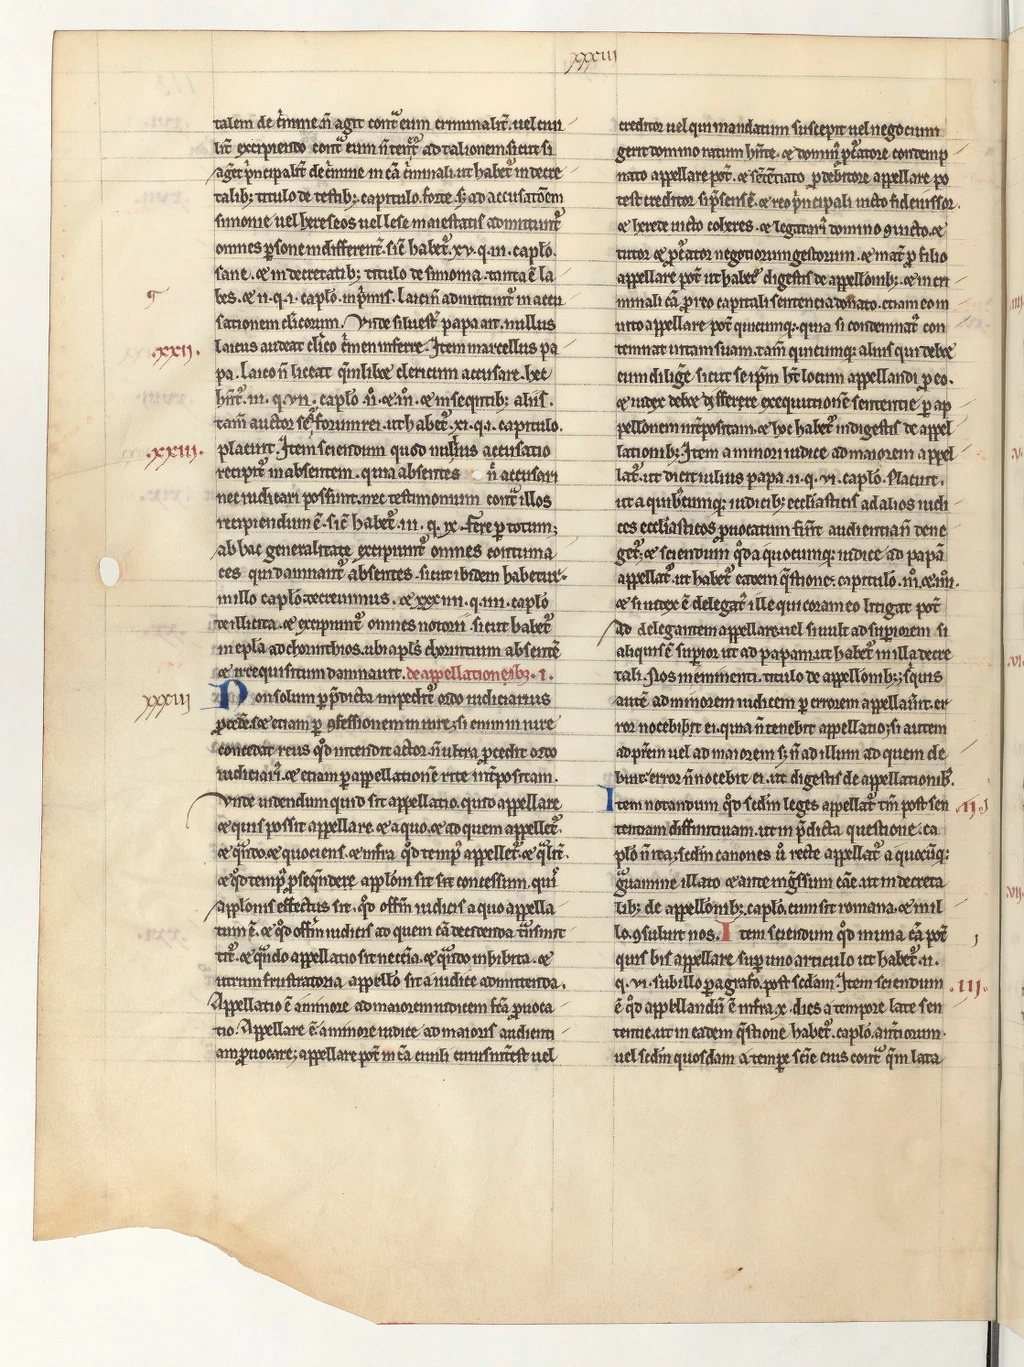 xxxiii
talem de c̄rimine. n̄ agit cont̄ eum criminalit̄. uel cum
lit̄ excipiendo cont̄ eum ad talionem sicut si
aget p̄ncipalit̄ de c̄rimine in cā c̄riminali. ut habet᷑ in decre
talib; titulo de testib; capitulo. forte. s; ad accusatōem
simonie uel hereseos uel lese maiestatis admittunt᷑
omnes ꝑsone indifferent̄. sic̄ habet᷑ .xv. q. iii. caplo.
sane. ⁊ in decretalib; titulo de simonia. tanta ē la
bes. ⁊ .ii. q. i. caplo. inp̄mis. laici n̄ admittunt᷑ in accu
sationem clericorum. Vnde siluest᷑ papa ait. nullus
.xxii.
laicus audeat clico c̄rimen inferre. Item marcellus pa
pa. laico n̄ liceat quemlibet clericum accusare. hec
hn̄t᷑ .iii. q. vii. caplo ⁊ in sequentib; aliis.
tam̄ auctor forum rei. ut habet᷑ .xi. q. i. capitulo.
.xxiii.
placuit. Item sciendum quod nullius accusatio
recipit᷑ in absentem. quia absentes n̄ accusari
nec iudicari possunt. nec testimonium cont̄ illos
recipiendum ē. sic̄ habet᷑ .iii. q. ix. fere ꝑ totum;
ab hac generalitate excipiunt᷑ omnes contuma
ces qui damnant᷑ absentes. sicut ibidem habetur.
in illo caplo. decreuimus. ⁊ xxiiii. q. iii. caplo
de illicita. ⁊ excipiunt᷑ omnes notorii sicut habet᷑
in epla ad chorinthios. ubi apls chorintium absentē
⁊ irrequisitum damnauit. de appellationib;. i.
xxxiii
Non solum ꝑ p̄dicta impedit᷑ ordo iudiciarius
ꝓcedere. s; ⁊ etiam ꝑ ꝯfessionem in iure; si enim in iure
concedat reus qd̄ intendit actor. n̄ ultra ꝓcedit ordo
iudiciari᷑. ⁊ etiam ꝑ appellationē rite int̄positam.
Vnde uidendum quid sit appellatio. quid appellare
⁊ quis possit appellare. ⁊ a quo. ⁊ ad quem appellet᷑.
⁊ qn̄do. ⁊ quociens. ⁊ infra qd̄ temp᷑ appellet᷑. ⁊ qualit̄.
⁊ qd̄ temp᷑ ꝓsequendere applōm sit sit concessum. qui᷑
applōnis effectus sit. qd̄ offm̄ iudicis a quo appella
tum ē. ⁊ qd̄ offm̄ iudicis ad quem cā decidenda t̄nsmit
tit᷑. ⁊ quando appellatio sit necīa. ⁊ quando inhibita. ⁊
utrum frustratoria appello sit a iudice admittenda.
Appellatio ē a minore ad maiorem iudicem fc̄a ꝓuoca
tio. Appellare ē a minore iudice ad maioris audienti
am ꝓuocare; appellare pot̄ in cā ciuili cuius int̄est uel
creditor uel qui mandatum suscepit uel negocium
gerit domino ratum hn̄te. ⁊ domin᷑ ꝓcatore contemp
nato appellare pot̄. ⁊ sc̄entiato ꝓ debitore appellare po
test creditor si p̄sens ē. ⁊ reo p̄ncipali uicto fideiussor.
⁊ herede uicto coheres. ⁊ legatari᷑ domino ꝯuicto. ⁊
tutor ⁊ ꝓcator negotiorum gestorum. ⁊ mat᷑ ꝓ filio
appellare pot̄ ut habet᷑ digestis de appellonib;. ⁊ in cri
minali cā ꝓ reo capitali sentencia donato. etiam eo in
uito appellare pot̄ quicumq;. quia si condemnat᷑ con
temnat uitam suam. tam̄ quicumq; alius qui debet
eum dilig̅e sicut se ip̄m ht̄ locum appellandi ꝓ eo.
⁊ iudex debet differere exequutionē sententie ꝑ ap
pellonem int̄positam. ⁊ hoc habet᷑ in digestis de appel
lationib; Item a minori iudice ad maiorem appel
lat᷑. ut dicit iulius papa .ii. q. vi. caplo. Placuit.
ut a quibuscumq; iudicib; ecclasticis ad alios iudi
ces ecclasticos ꝓuocatum fu̅it audientia n̄ dene
get᷑; ⁊ sciendum qd̄ a quocumq; iudice ad papā
appellat᷑. ut habet᷑ eadem q̄stione. capitulo. iii. ⁊ iiii.
⁊ si iudex ē delegat᷑ ille qui coram eo litigat pot̄
ad delegantem appellare uel si uult ad suꝑiorem si
aliquis ē suꝑior ut ad papam. ut habet᷑ in illa decre
tali. Nos meminenti. titulo de appellonib; si quis
autē ad minorem iudicem ꝑ errorem appellau̅it. er
ror nocebit ei. quia n̄ tenebit appellatio; si autem
ad p̄rem uel ad maiorem s; n̄ ad illum ad quem de
buit. error n̄ nocebit ei. ut digestis de appellationib;.
.ii.
Item notandum qd̄ scd̄m leges appellat᷑ tm̄ post sen
tentiam diffinitiuam. ut in p̄dicta questione. ca
plo n̄ ita; scd̄m canones u̅ recte appellat᷑ a quocūq;
guamine illato ⁊ ante ing̅ssum cāe. ut in decreta
lib; de appellonib;. caplo. cum sit romana. ⁊ in il
lo. ꝯsuluit nos. Item sciendum qd̄ in una cā pot̄
quis bis appellare suꝑ uno articulo ut habet᷑ .ii.
.iii.
q. vi. sub illo paragrafo. post sedam. Item sciendum
ē qd̄ appellandū ē infra .x. dies a tempore late sen
tentie. ut in eadem q̄stione habet᷑. caplo. anteriorum.
uel scd̄m quosdam a tempe scīe eius cont̄ quem lata